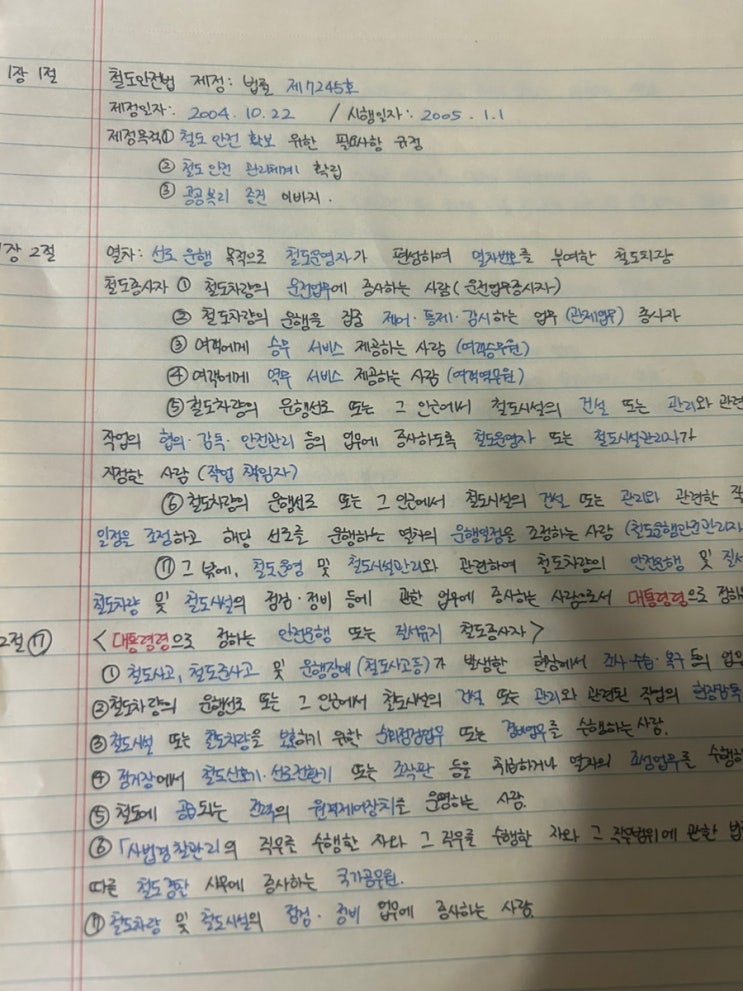 1장 1절 철도안전법 제정: 법률 제7245호
제정일자: 2004. 10. 22 / 시행일자: 2005. 1. 1
제정목적① 철도 안전 확보 위한 필요사항 규정
② 철도 안전 관리체계 확립
③ 공공복리 증진 이바지.
장 2절 열차: 선로 운행 목적으로 철도운영자가 편성하여 열차번호를 부여한 철도차량
철도종사자 ① 철도차량의 운전업무에 종사하는 사람(운전업무종사자)
② 철도차량의 운행을 집중 제어·통제·감시하는 업무 (관제업무) 종사자
③ 여객에게 승무 서비스 제공하는 사람 (여객승무원)
④ 여객에게 역무 서비스 제공하는 사람 (여객역무원)
⑤ 철도차량의 운행선로 또는 그 인근에서 철도시설의 건설 또는 관리와 관련
작업의 협의·감독·안전관리 등의 업무에 종사하도록 철도운영자 또는 철도시설관리자가
지정한 사람 (작업 책임자)
⑥ 철도차량의 운행선로 또는 그 인근에서 철도시설의 건설 또는 관리와 관련한 작
일정을 조정하고 해당 선로를 운행하는 열차의 운행일정을 조정하는 사람 (철도운행안전관리자
⑦ 그 밖에, 철도운영 및 철도시설관리와 관련하여 철도차량의 안전운행 및 질서
철도차량 및 철도시설의 점검·정비 등에 관한 업무에 종사하는 사람으로서 대통령령으로 정하
2절 ⑦ <대통령령으로 정하는 안전운행 또는 질서유지 철도종사자>
① 철도사고, 철도준사고 및 운행장애(철도사고등)가 발생한 현장에서 조사·수습·복구 등의 업무
② 철도차량의 운행선로 또는 그 인근에서 철도시설의 건설 또는 관리와 관련된 작업의 현장감독
③ 철도시설 또는 철도차량을 보호하기 위한 순회점검업무 또는 경비업무를 수행하는 사람.
④ 정거장에서 철도신호기·선로전환기 또는 조작판 등을 취급하거나 열차의 조성업무를 수행하
⑤ 철도에 공급되는 전력의 원격제어장치를 운영하는 사람.
⑥ 「사법경찰관리의 직무를 수행한 자와 그 직무를 수행한 자와 그 직무범위에 관한 법
따른 철도경찰 사무에 종사하는 국가공무원.
⑦ 철도차량 및 철도시설의 점검·정비 업무에 종사하는 사람.